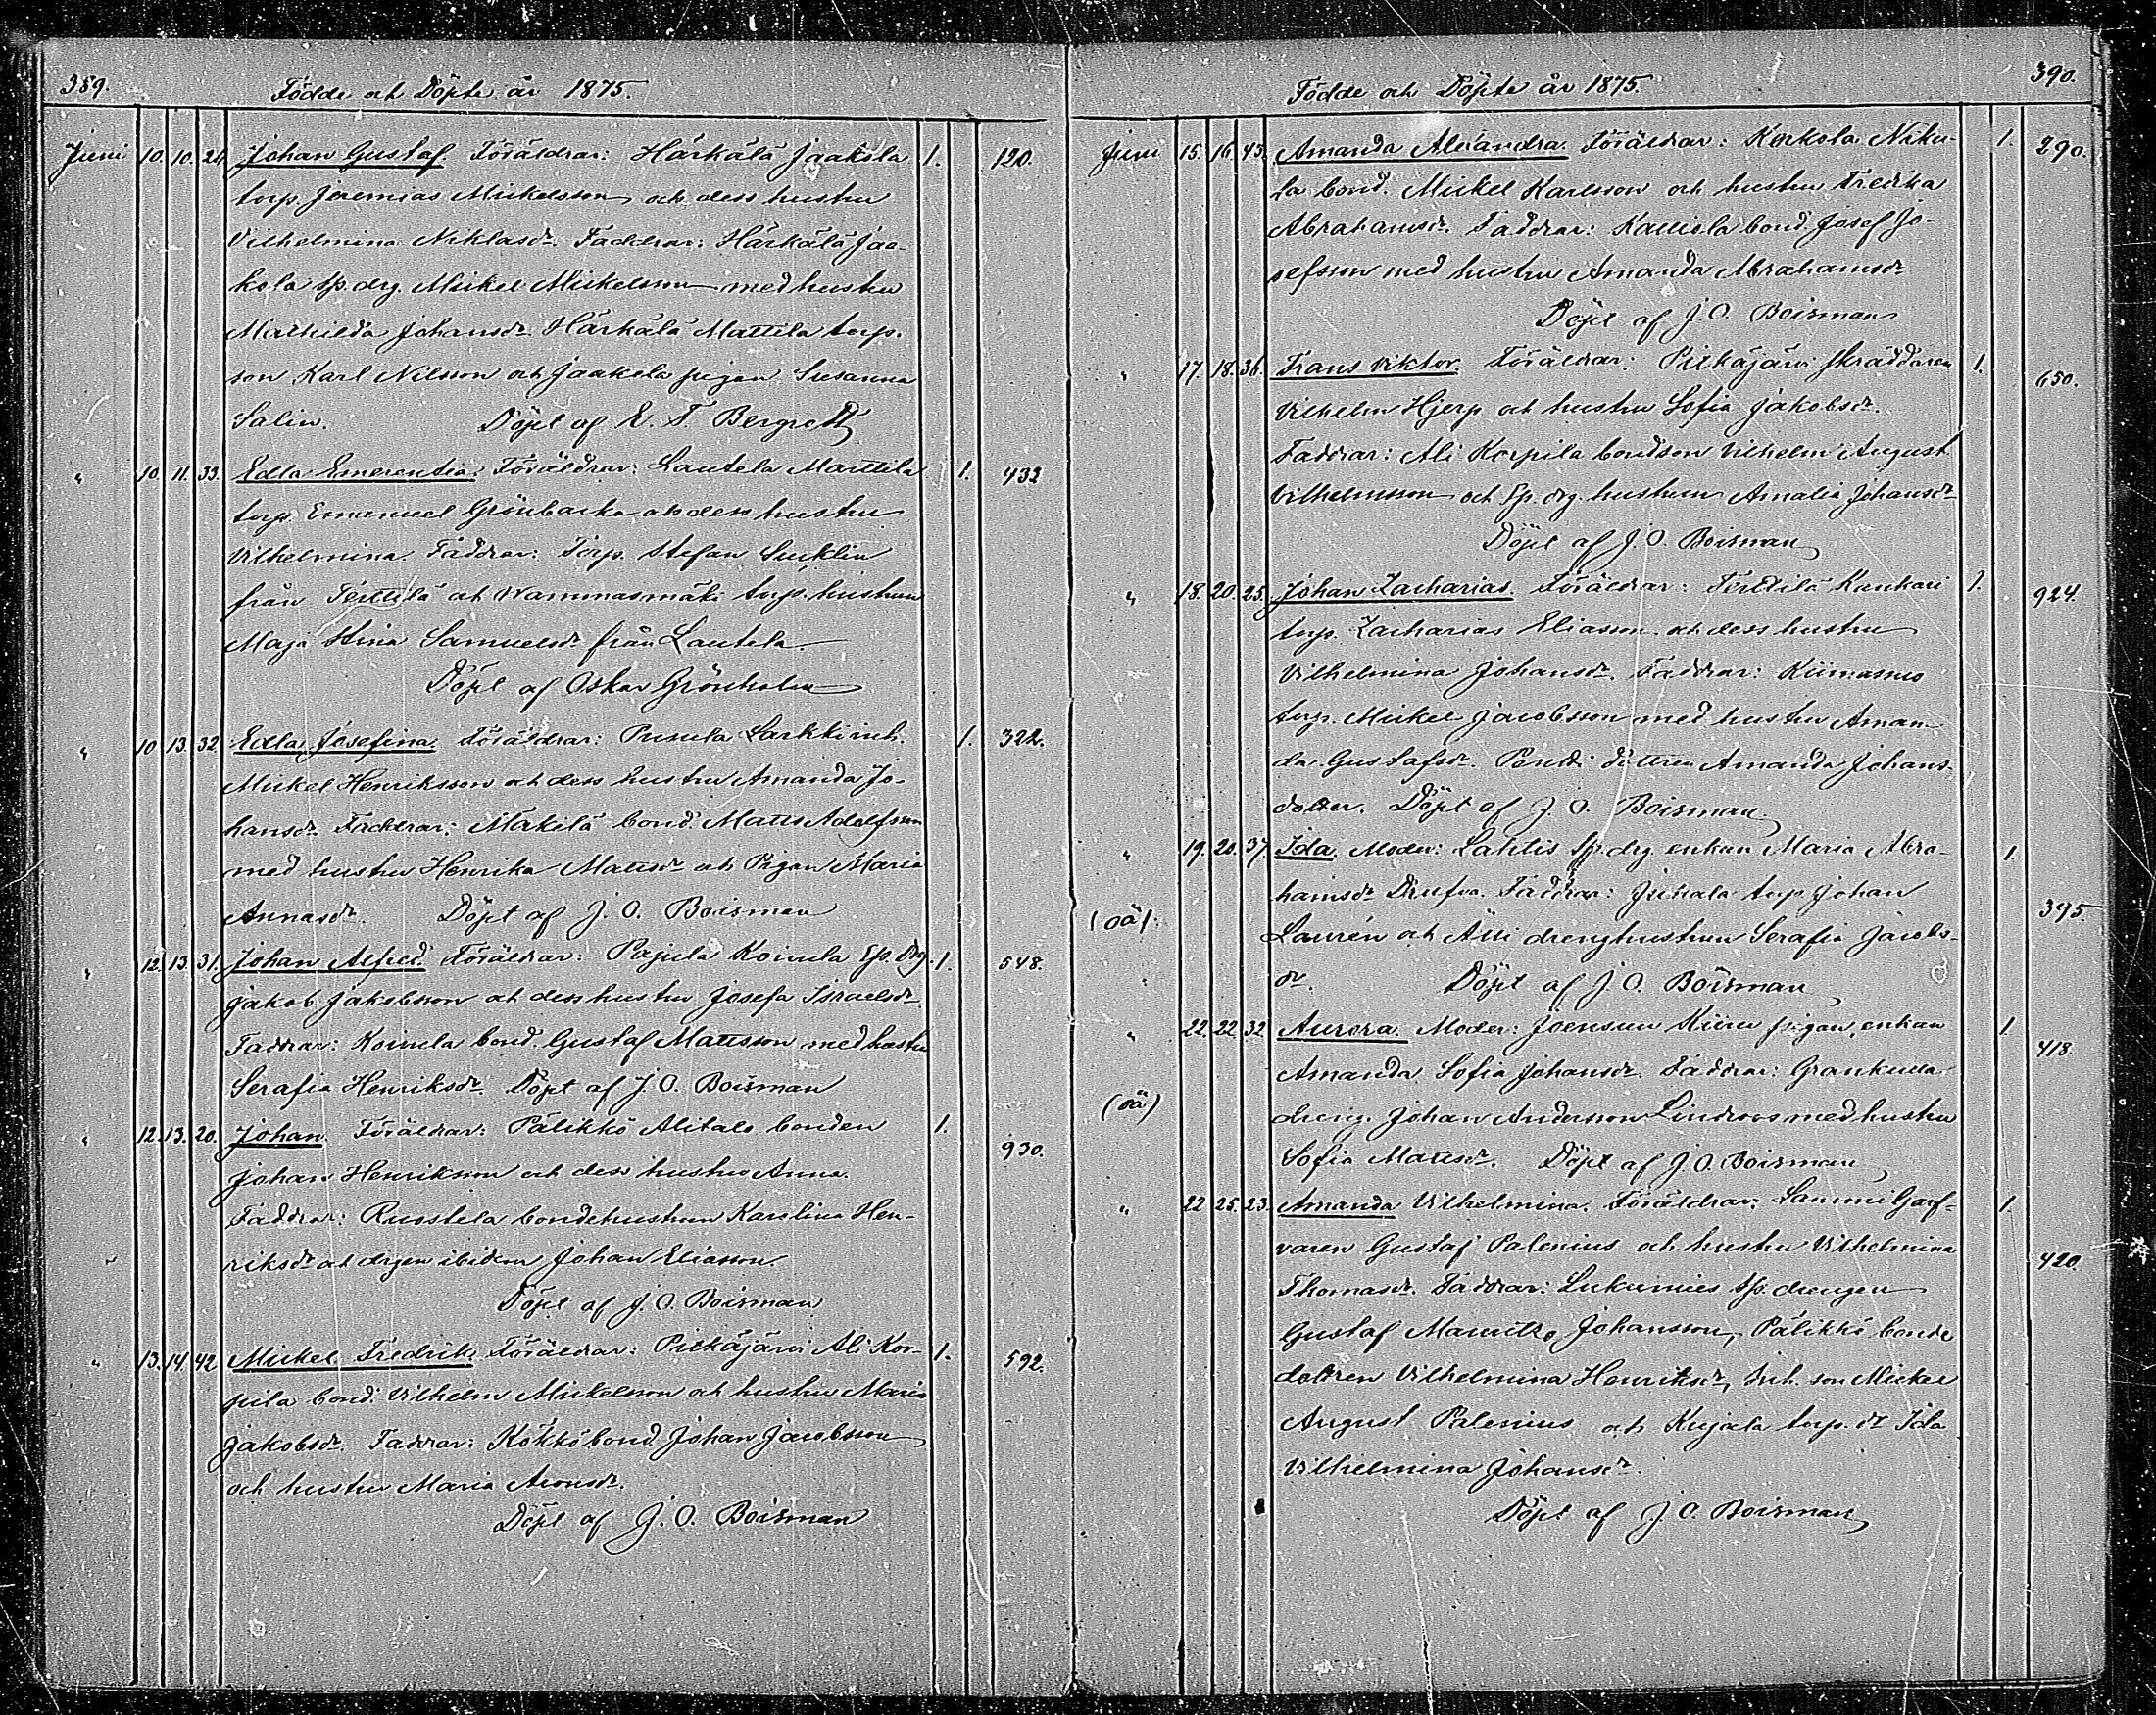 389.
Födde och Döpte år 1875.
Juni 10. 10. 24. Johan Gustaf. Föräldrar: Härkälä Jaakola 1. 120.
torp. Jeremias Mickelsson och dess hustru
Vilhelmina Niklasdr. Faddrar: Härkälä Jaa-
kola sp.drg. Mickel Mickelsson med hustru
Mathilda Johansdr. Härkälä Mattila torp.
son Karl Nilsson och Jaakola pigan Susanna
Salin. Döpt af E. F. Bergrott
" 10. 11. 33. Edla Emerentia. Föräldrar: Lautela Marttila 1. 432
torp. Emanuel Grönbacka och dess hustru
Vilhelmina. Faddrar: Torp. Stefan Sucklin
från Terttilä och Wammasmäki torp. hustrun
Maja Stina Samuelsdr. från Lautela.
Döpt af Oskar Grönholm
" 10 13. 32 Edla Josefina. Föräldrar: Pusula Larkki inh. 1. 322.
Mickel Henriksson och dess hustru Amanda Jo-
hansdr. Faddrar: Mäkilä bond. Matts Adolfsson
med hustru Henrika Mattsdr. och Pigan Maria
Annasdr. Döpt af J. O. Boisman
" 12. 13. 31. Johan Alfred. Föräldrar: Pajula Koivula Sp. Drg. 1. 548.
Jakob Jakobsson och dess hustru Josefa Israelsdr.
Faddrar: Koivula bond. Gustaf Mattsson med hustru
Serafia Henriksdr. Döpt af J. O. Boisman
" 12. 13. 20. Johan. Föräldrar: Pälikkö Alitalo bonden 1. 930.
Johan Henriksson och dess hustru Anna.
Faddrar: Ruostela bondehustrun Karolina Hen-
riksdr. och drgen ibidem Johan Eliasson.
Döpt af J. O. Boisman
" 13. 14 42 Mickel Fredrik. Föräldrar: Pitkäjärvi Ali Kor- 1. 592.
pila bond. Vilhelm Mickelsson och hustru Maria
Jakobsdr. Faddrar: Kökkö bond. Johan Jacobsson
och hustru Maria Aronsdr.
Döpt af J. O. Boisman
390.
Födde och Döpte år 1875.
Juni 15. 16. 45. Amanda Alexandra. Föräldrar: Korkola Niku- 1. 290.
la bond. Mickel Karlsson och hustru Fredrika
Abrahamsdr. Faddrar: Kalliola bond. Josef Jo-
sefsson med hustru Amanda Abrahamsdr.
Döpt af J. O. Boisman
" 17. 18. 36. Frans Viktor. Föräldrar: Pitkäjärvi skräddaren 1. 650.
Vilhelm Hjerp och hustru Sofia Jakobsdr.
Faddrar: Ali Korpila bondson Vilhelm August
Vilhelmsson och Sp. drg. hustrun Amalia Johansdr.
Döpt af J. O. Boisman
" 18. 20. 25. Johan Zacharias. Föräldrar: Terttilä Kankari 1. 924.
torp. Zacharias Eliasson och dess hustru
Vilhelmina Johansdr. Faddrar: Kiimasuo
torp. Mickel Jacobsson med hustru Aman-
da Gustafsdr. Pentti dottren Amanda Johans-
dotter. Döpt af J. O. Boisman
" 19. 20. 37. Ida. Moder: Lahtis Sp.drg. enkan Maria Abra- 1.
hamsdr. Drufva. Faddrar: Juhala torp. Johan
(oä). 395.
Laurén och Älli drenghustrun Serafia Jacobs-
dr. Döpt af J. O. Boisman
" 22. 22. 32. Aurora. Moder: Joensuu Kiiru pigan, enkan 1. 418.
Amanda Sofia Johansdr. Faddrar: Grankulla
(oä)
dreng. Johan Andersson Lindroos med hustru
Sofia Mattsdr. Döpt af J. O. Boisman
" 22 25. 23. Amanda Vilhelmina. Föräldrar: Lammi Garf- 1.
varen Gustaf Palenius och hustru Vilhelmina
420.
Thomasdr. Faddrar: Lukumies sp. drengen
Gustaf Mauritz Johansson, Pälikkö bonde
dottren Vilhelmina Henriksdr, Inh. son Mickel
August Palenius och Kujala torp. dr Ida
Vilhelmina Johansdr.
Döpt af J. O. Boisman